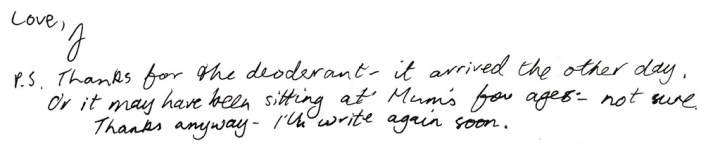 Love,
J
P.S. Thanks for the deoderant - it arrived the other day.
Or it may have been sitting at Mum's for ages - not sure.
Thanks anyway - I'll write again soon.